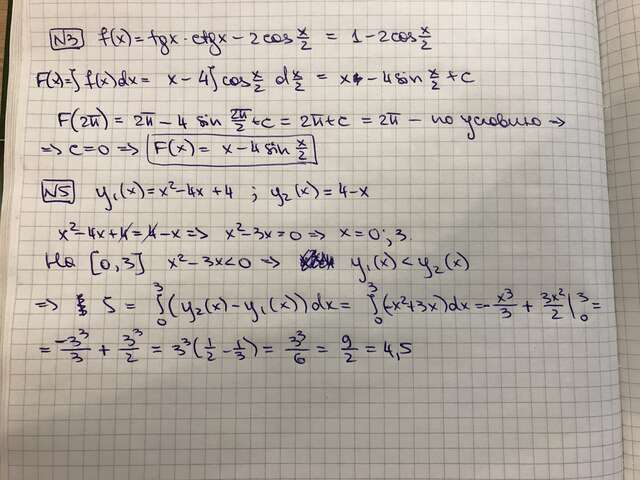 N3 f(x) = tgx · ctgx − 2cos x/2 = 1 − 2cos x/2
F(x) = ∫ f(x)dx = x − 4∫ cos x/2 d x/2 = x − 4 sin x/2 + c
F(2π) = 2π − 4 sin 2π/2 + c = 2π + c = 2π − по условию ⇒
⇒ c = 0 ⇒ F(x) = x − 4 sin x/2
N5 y₁(x) = x² − 4x + 4 ; y₂(x) = 4 − x
x² − 4x + 4 = 4 − x ⇒ x² − 3x = 0 ⇒ x = 0; 3.
На [0, 3] x² − 3x < 0 ⇒ y₁(x) < y₂(x)
⇒ S = ∫₀³ (y₂(x) − y₁(x)) dx = ∫₀³ (−x² + 3x) dx = − x³/3 + 3x²/2 |₀³ =
= −3³/3 + 3³/2 = 3³(1/2 − 1/3) = 3³/6 = 9/2 = 4,5